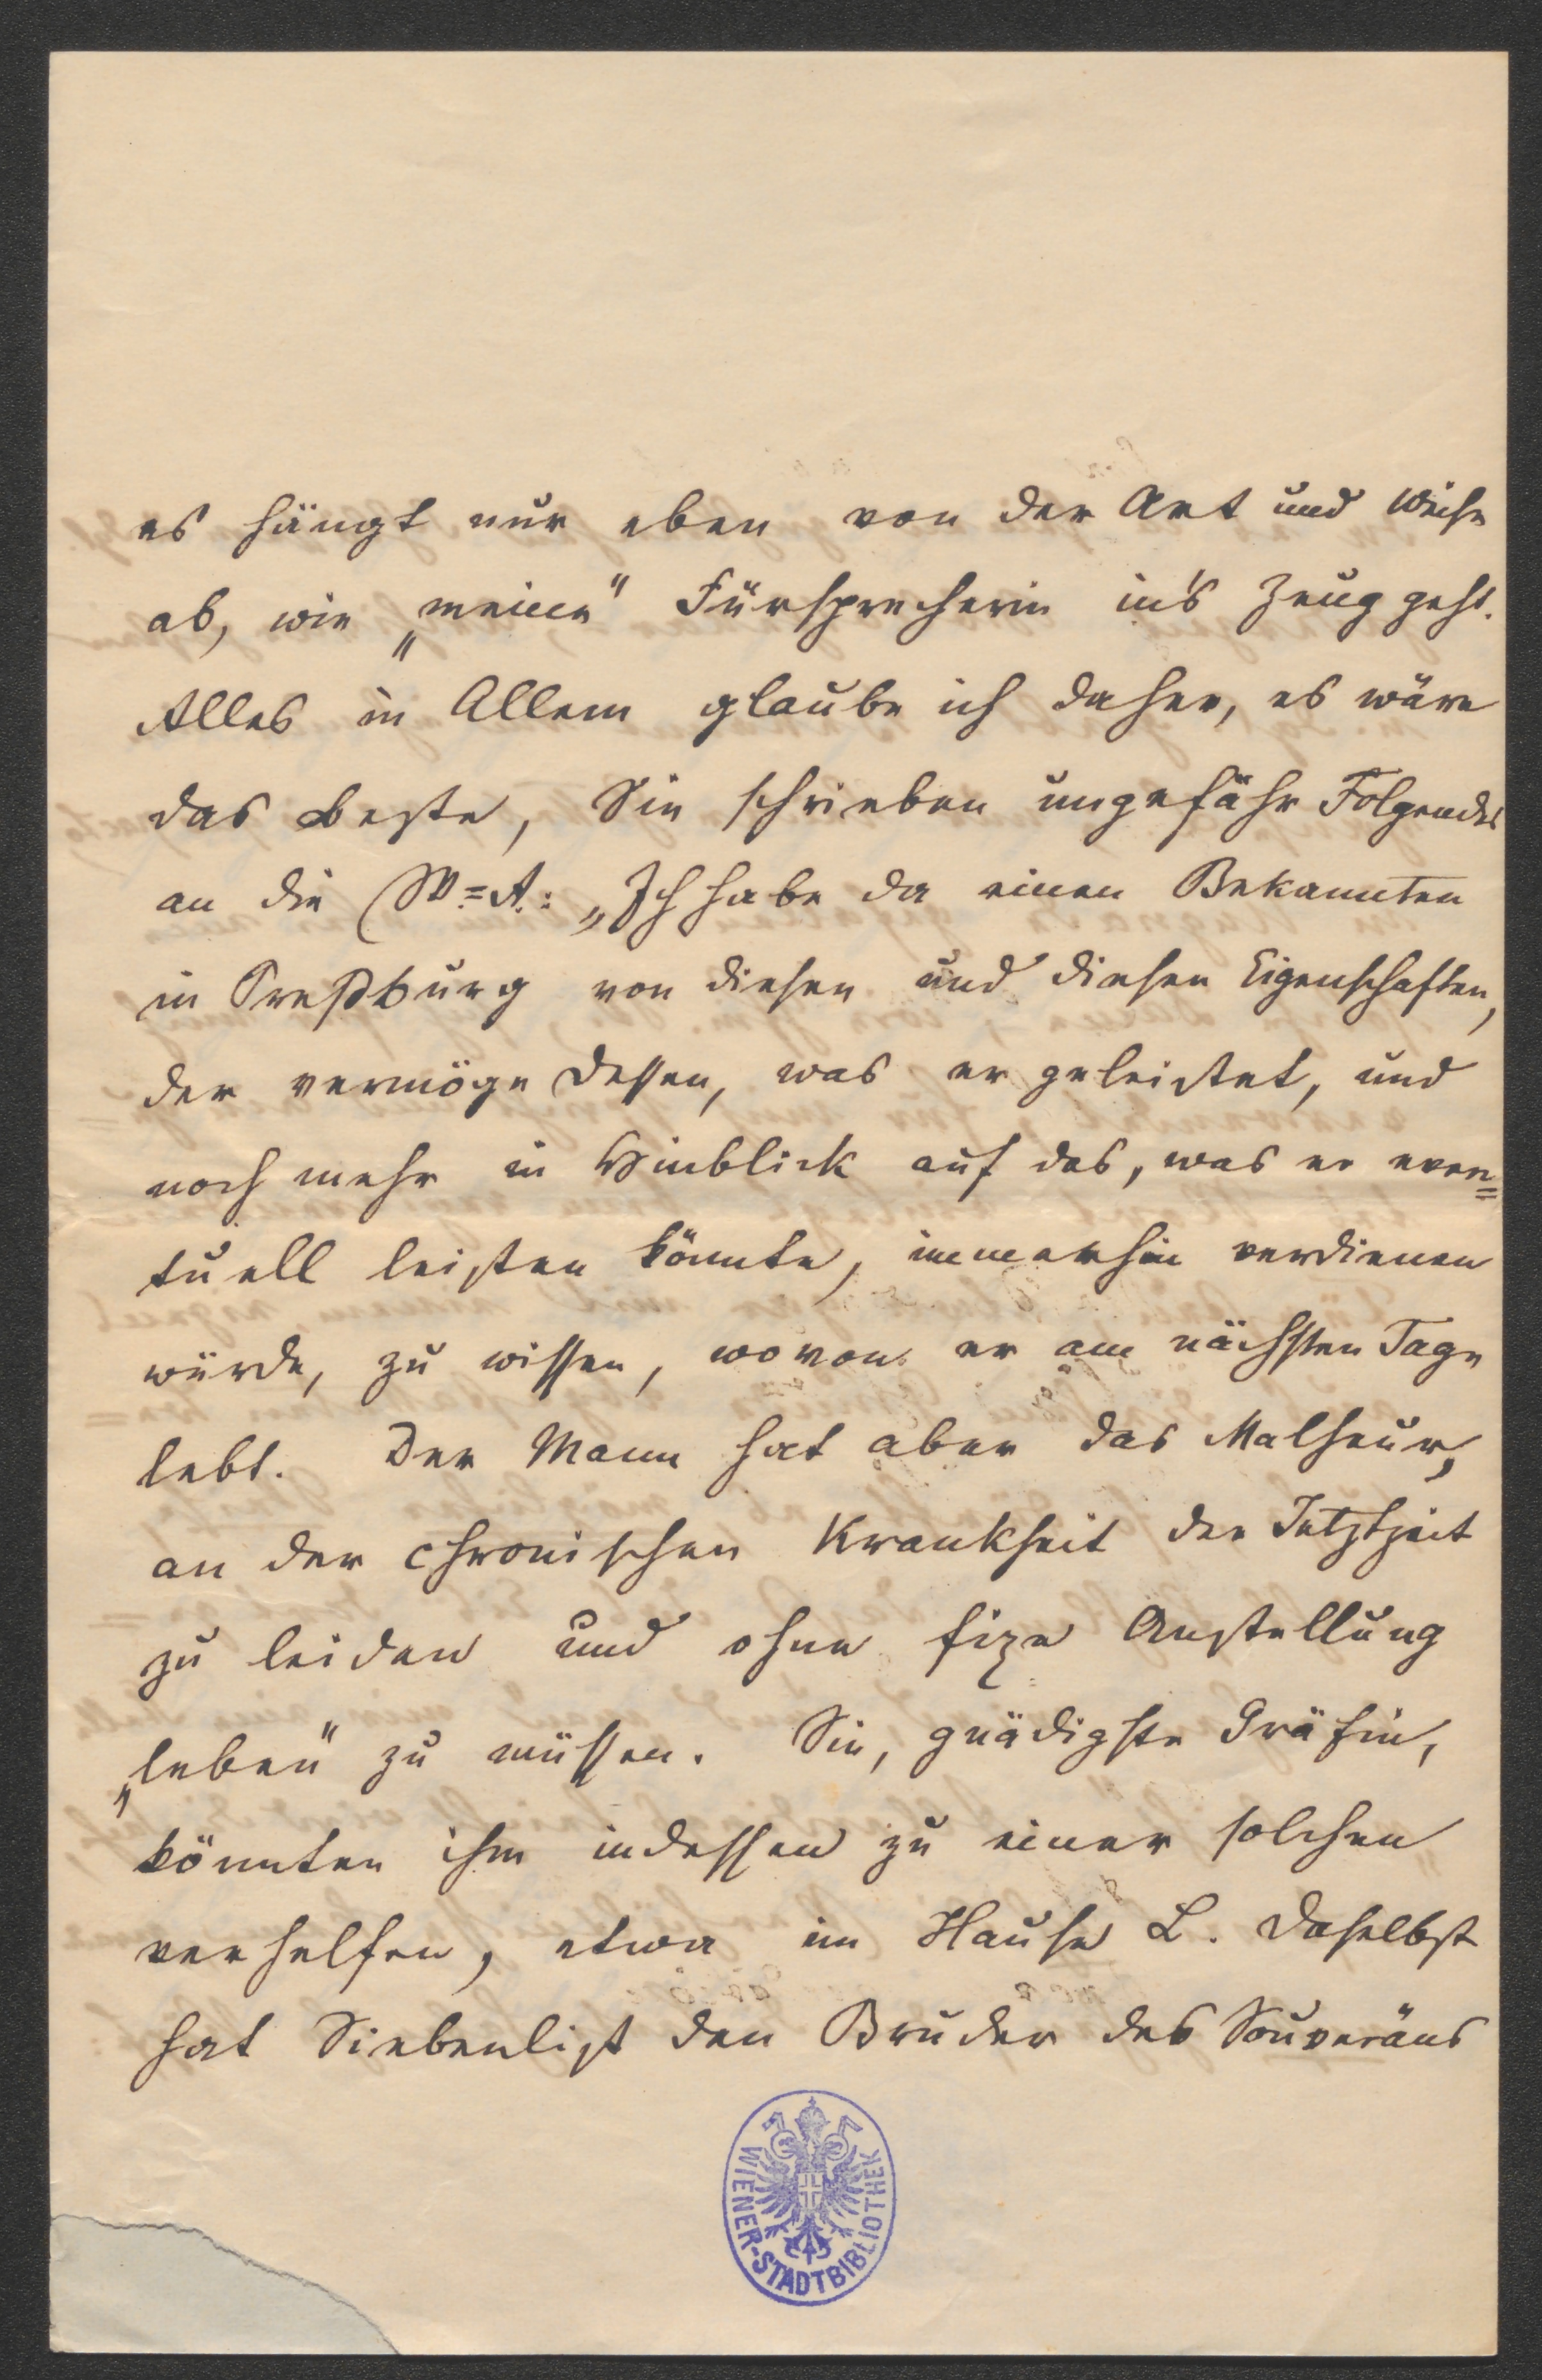 es hängt nur eben von der Art und Weise
ab, wie „meine" Fürsprecherin in's Zeug geht.
Alles in Allem glaube ich daher, es wäre
das beste, Sie schrieben ungefähr Folgendes
an die W.=A.: „Ich habe da einen Bekannten
in Preßburg von diesen und diesen Eigenschaften,
der vermöge dessen, was er geleistet, und
noch mehr in Hinblick auf das, was er even=
tuell leisten könnte, immerhin verdienen
würde, zu wissen, wovon er am nächsten Tage
lebt. Der Mann hat aber das Malheur,
an der chronischen Krankheit der Jetztzeit
zu leiden und ohne fixe Anstellung
„leben" zu müssen. Sie, gnädigste Gräfin,
könnten ihm indessen zu einer solchen
verhelfen, etwa im Hause L. Daselbst
hat Siebenlist den Bruder des Souveräns
WIENER-STADTBIBLIOTHEK